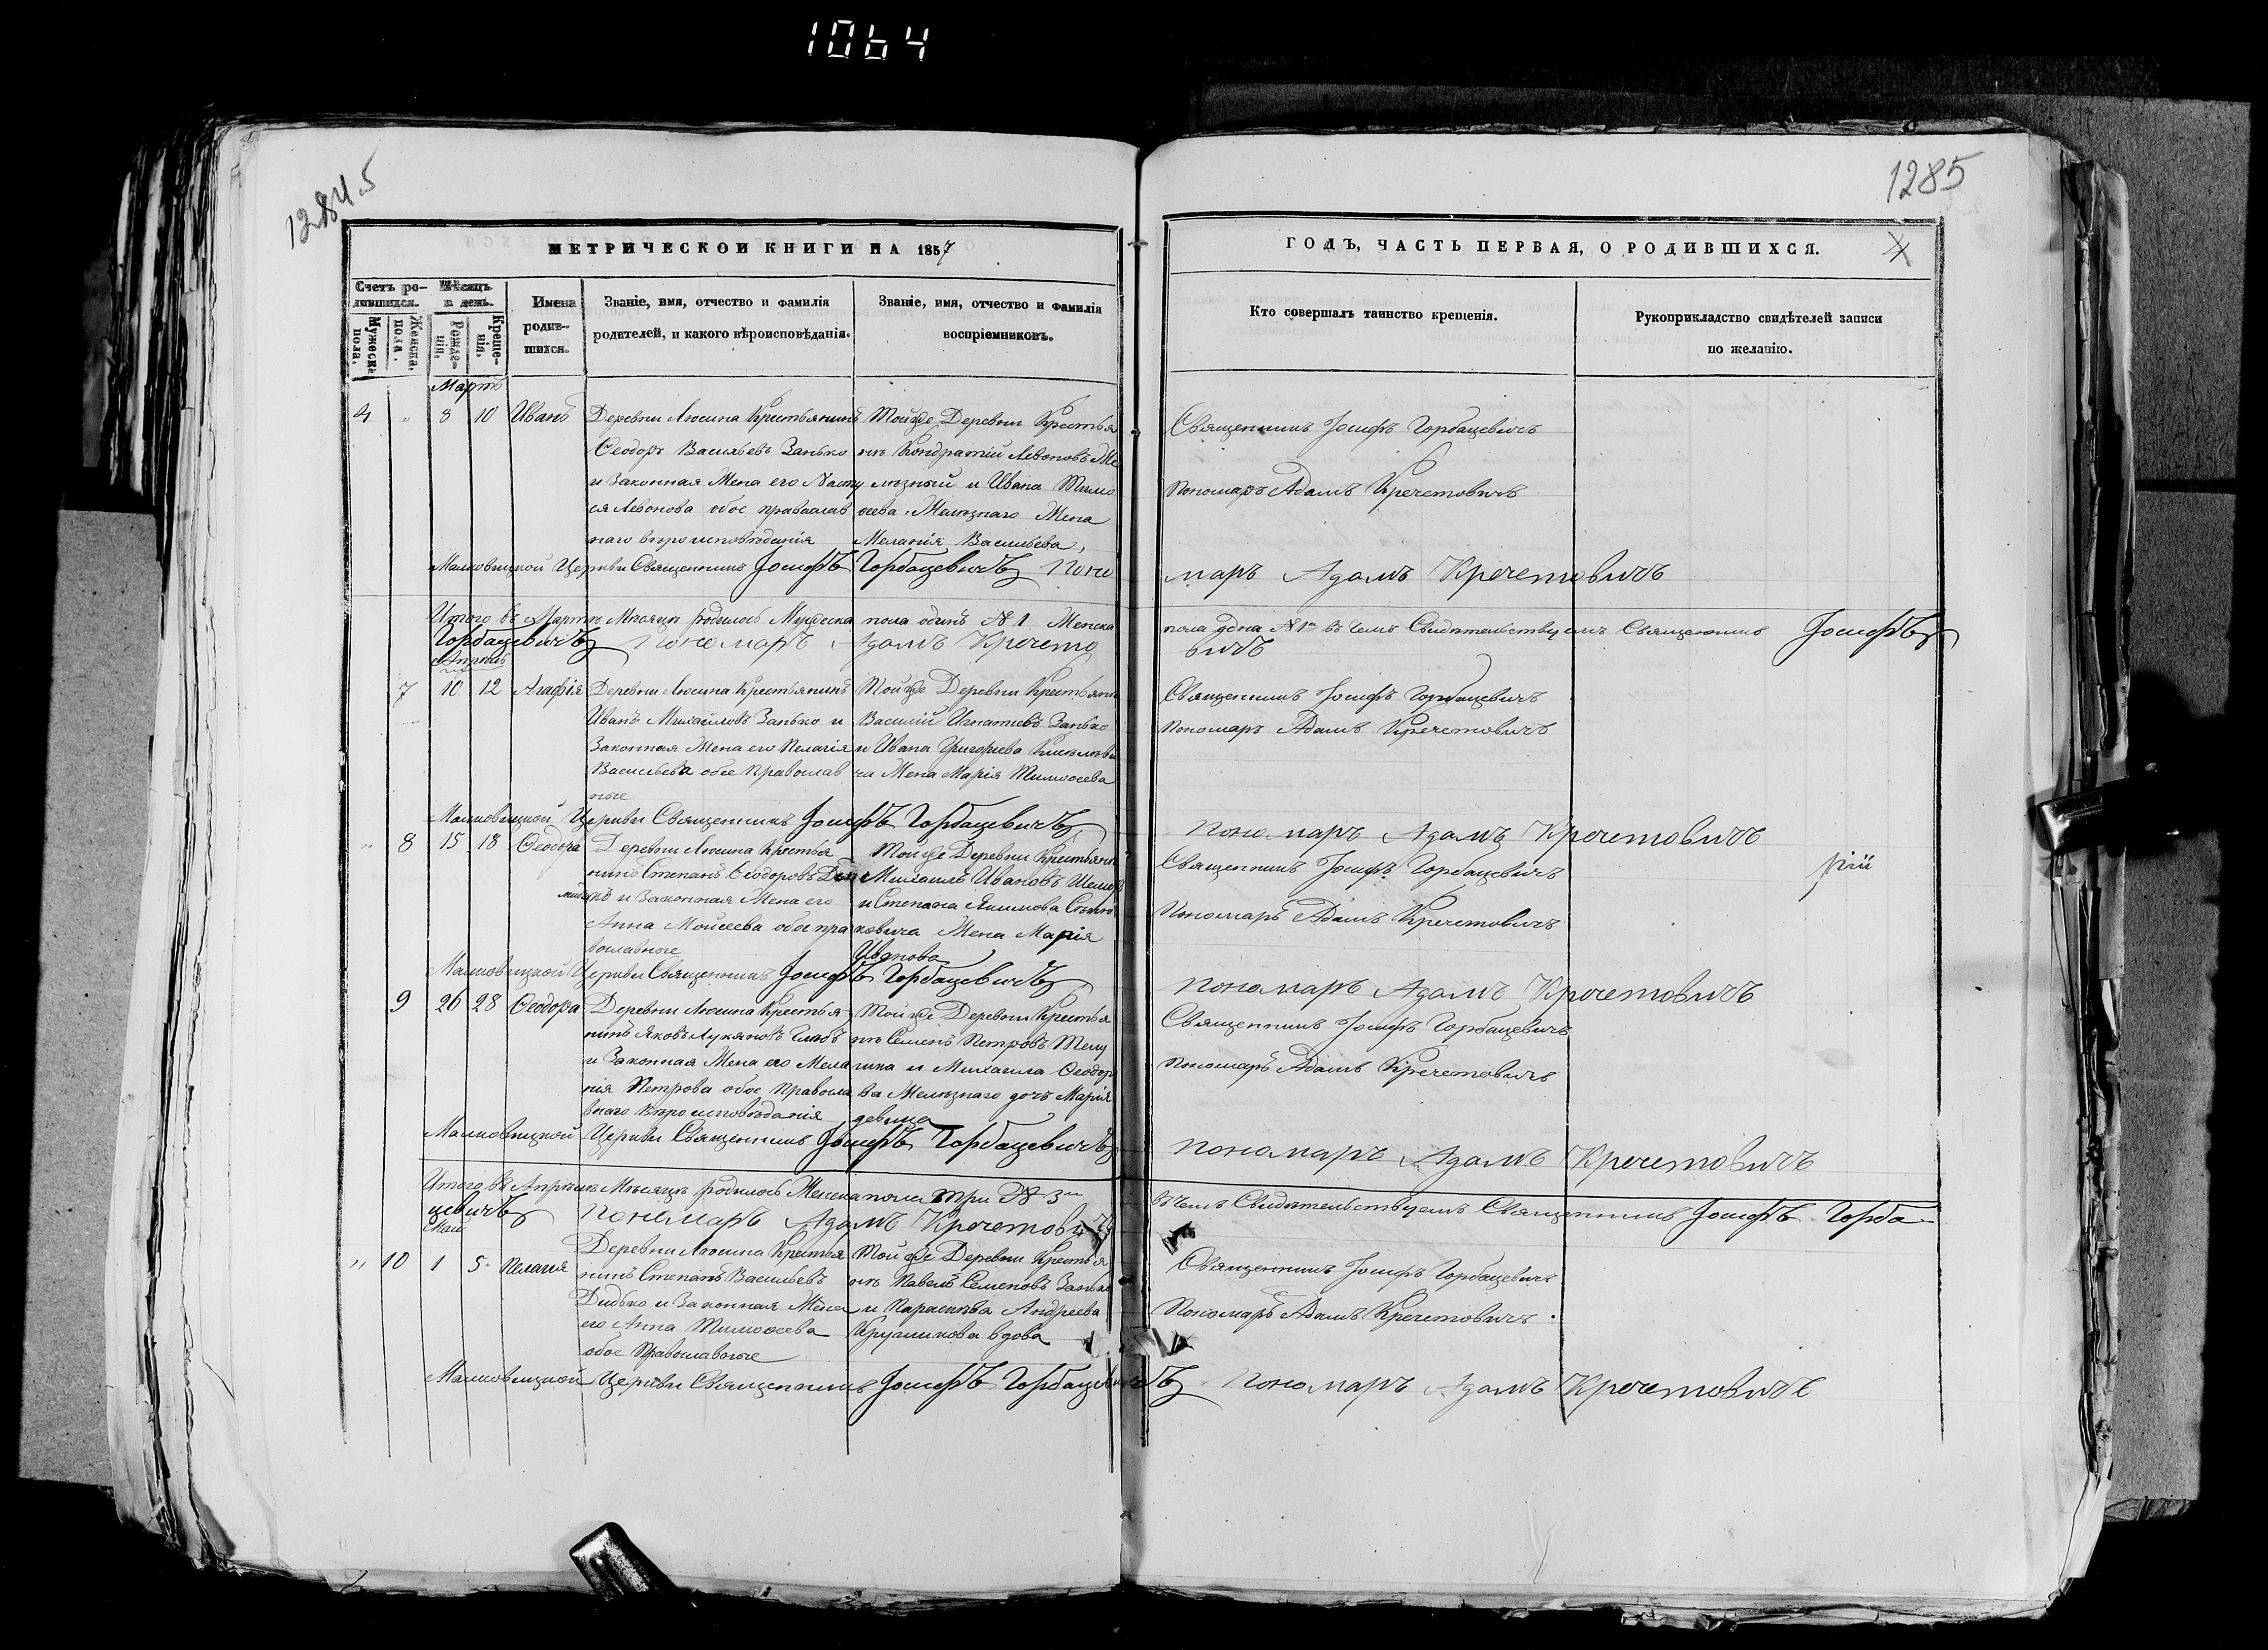 1064
1284.5
1285
МЕТРИЧЕСКОЙ КНИГИ НА 1857
ГОДЪ, ЧАСТЬ ПЕРВАЯ, О РОДИВШИХСЯ.
Счетъ ро-
дившихся.
Мѣсяцъ
и день.
Мужеска
пола.
Женска
пола.
Рожде-
нія.
Креще-
нія.
Имена
родив-
шихся.
Званіе, имя, отчество и фамилія
родителей, и какого вѣроисповѣданія.
Званіе, имя, отчество и фамилія
воспріемниковъ.
Кто совершалъ таинство крещенія.
Рукоприкладство свидѣтелей записи
по желанію.
Мартъ
4 " 8 10 Иванъ
Деревни Люсина Крестьянинъ
Ѳеодоръ Васильевъ Занько
и Законная Жена его Насту
ся Левонова обое православ
наго вѣроисповѣданія
Тойже Деревни Крестья
нъ Кондратій Левоновъ Же
лѣзный и Ивана Тимо
ѳеева Желѣзнаго Жена
Меланія Васильева,
Священникъ Іосифъ Горбацевичъ
Пономаръ Адамъ Кречетовичъ
Малковицкой Церкви Священникъ Іосифъ Горбацевичъ Поно
маръ Адамъ Кречетовичъ
Итого въ Мартѣ Мѣсяцѣ родилось Мужеска пола одинъ № 1 Женска
пола одна № 1 въ чемъ Свидѣтельствуемъ Священникъ Іосифъ
Горбацевичъ Пономаръ Адамъ Кречето
вичъ
Апрѣль
7 10 12 Агафія
Деревни Люсина Крестьянинъ
Иванъ Михайловъ Занько и
Законная Жена его Пелагія
Васильева обое Православ
ные
Тойже Деревни Крестьянинъ
Василій Игнатьевъ Занько
и Ивана Григорьева
ча Жена Марія Тимоѳеева
Священникъ Іосифъ Горбацевичъ
Пономаръ Адамъ Кречетовичъ
Малковицкой Церкви Священникъ Іосифъ Горбацевичъ
Пономаръ Адамъ Кречетовичъ
" 8 15 18 Ѳеодора
Деревни Люсина Крестья
нинъ Степанъ Ѳеодоровъ
и Законная Жена его
Анна Мойсеева обое пра
вославные
Тойже Деревни Крестьянинъ
Михаилъ Ивановъ
и Степана Якимова
ковича Жена Марія
Иванова
Священникъ Іосифъ Горбацевичъ
Пономаръ Адамъ Кречетовичъ
Малковицкой Церкви Священникъ Іосифъ Горбацевичъ
Пономаръ Адамъ Кречетовичъ
9 26 28 Ѳеодора
Деревни Люсина Крестья
нинъ Яковъ Лукяновъ
и Законная Жена его Мела
нія Петрова обое Правосла
внаго Вѣроисповѣданія
Тойже Деревни Крестья
нъ Семенъ Петровъ
и Михаила Ѳеодоро
ва Желѣзнаго дочь Марія
девица
Священникъ Іосифъ Горбацевичъ
Пономаръ Адамъ Кречетовичъ
Малковицкой Церкви Священникъ Іосифъ Горбацевичъ
Пономаръ Адамъ Кречетовичъ
Итого въ Апрѣлѣ Мѣсяцѣ родилось Женска пола три № 3
въ чемъ Свидѣтельствуемъ Священникъ Іосифъ Горба
цевичъ Пономаръ Адамъ Кречетовичъ
Май
" 10 1 5 Пелагія
Деревни Люсина Крестья
нинъ Степанъ Васильевъ
Дидько и Законная Жена
его Анна Тимоѳеева
обое Православные
Тойже Деревни Крестья
нъ Павелъ Семеновъ Занько
и Параскева Андреева
вдова
Священникъ Іосифъ Горбацевичъ
Пономаръ Адамъ Кречетовичъ.
Малковицкой Церкви Священникъ Іосифъ Горбацевичъ Пономаръ Адамъ Кречетовичъ